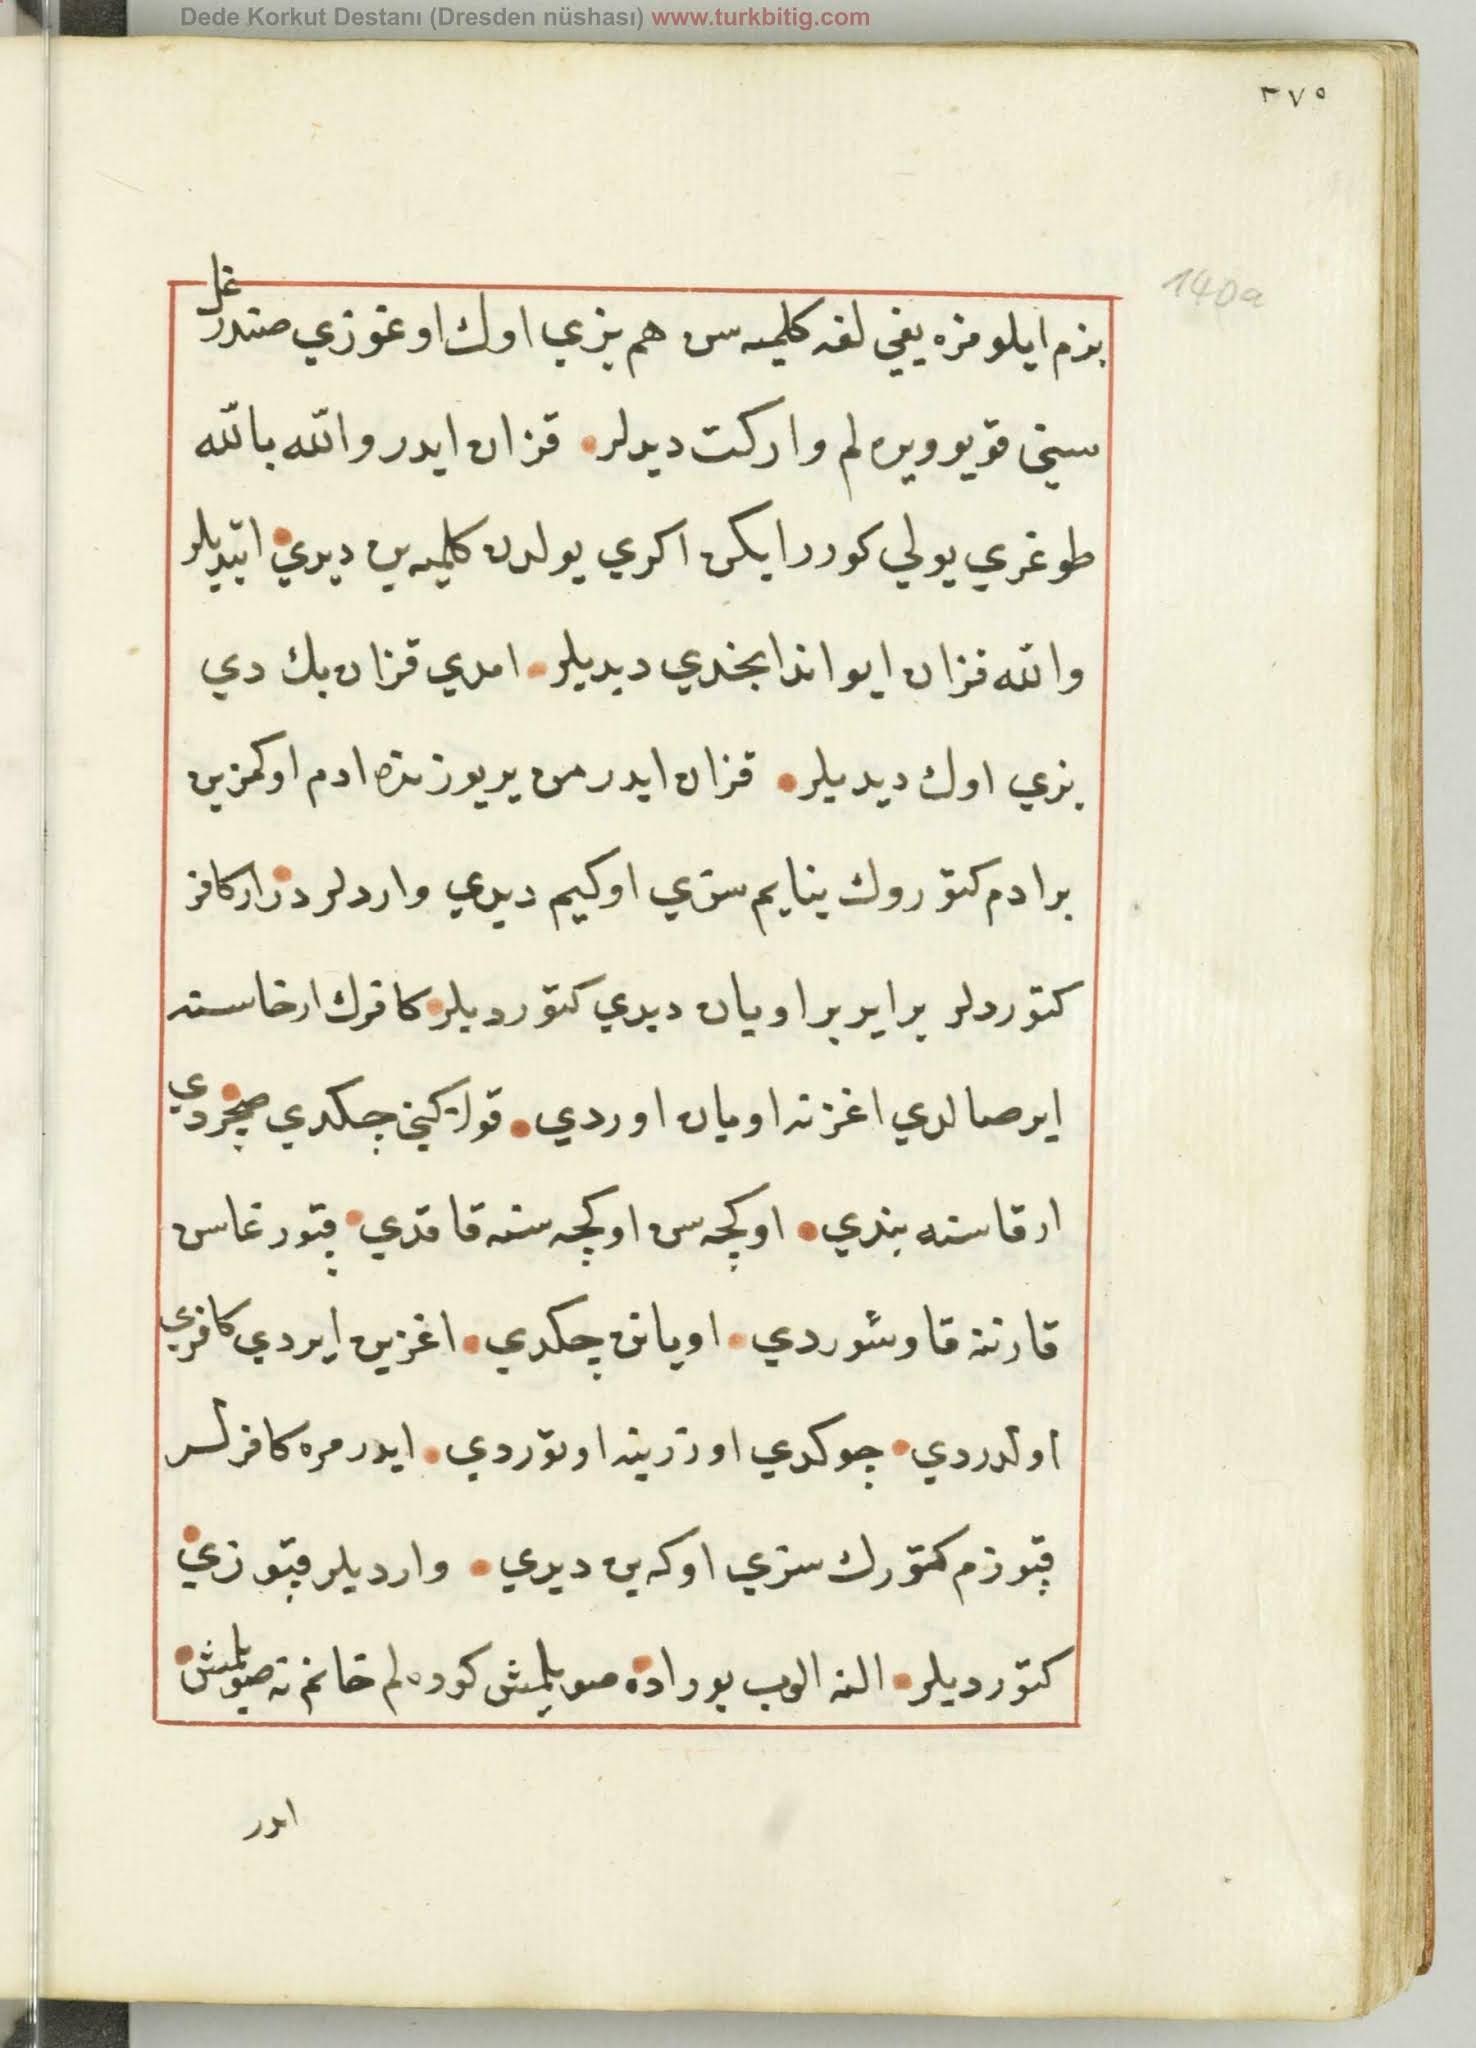 Dede Korkut Destanı (Dresden nüshası) www.turkbitig.com
٣٧٥
140a
بزم ایلومزه یغی لغه کلمیه سن هم بزي اوك اوغوزي صندرغل
سني قویو ویره لم وارکت دیدلر قزان ایدر والله بالله
طوغري یولي کورر ایکن اکري یولدن کلمیه ین دیدي ایتدیلر
والله قزان ایو اندا بخدي دیدیلر امدي قزان بك دي
بزي اوك دیدیلر قزان ایدر من یر یوزنده ادم اوکمزین
بر ادم کتوروك بنایم سزي اوکیم دیدي واردلر در ار کافر
کتوردلر بر ایر بر اویان دیدي کتوردیلر کافرك ارخاسنه
ایر صالدي اغزنه اویان اوردي قولانكني چکدي صچردي
ارقاسنه بندي اوکچه سن اوکچه سنه قاقدي قپورغاسن
قارننه قاوشوردي اویانن چکدي اغزین ایردي کافري
اولدردي چوکدي اوزرینه اوتوردي ایدر مره کافرلر
قپوزم کتورك سزي اوکه ین دیدي واردیلر قپوزي
کتوردیلر النه الوب بوراده صویلمش کوره لم خانم نه صویلمش
ایدر